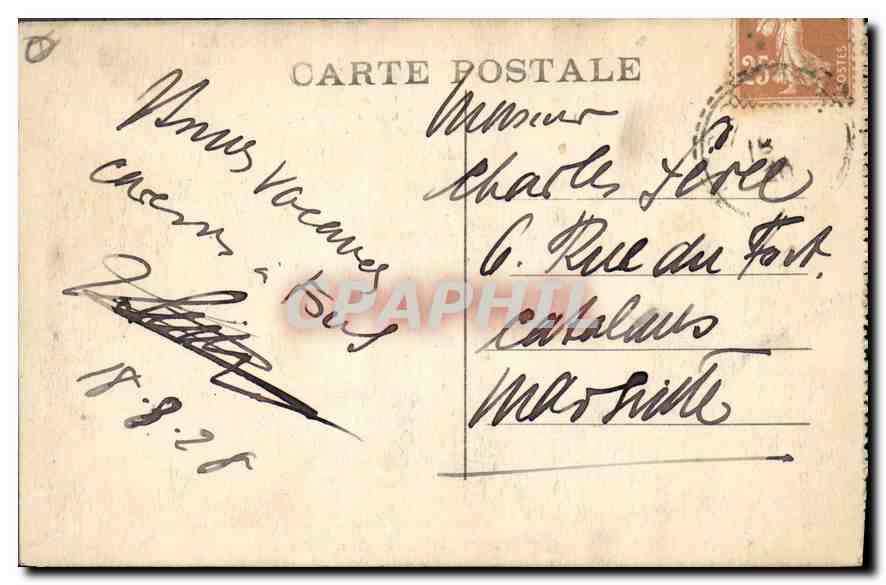 CARTE POSTALE
POSTES
Bonnes vacances
à tous
18.8.28
Monsieur
Charles
6. Rue du Fort
Catalans
Marseille
CPAPHIL